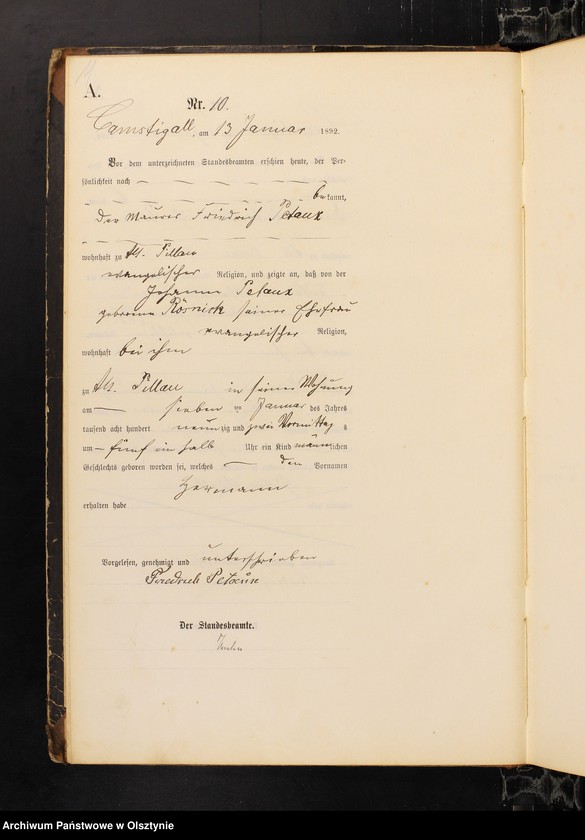 A.
Nr. 10.
Camstigall, am 13 Januar 1892.
Vor dem unterzeichneten Standesbeamten erschien heute, der Per-
sönlichkeit nach
bekannt,
der Maurer Friedrich
wohnhaft zu Alt Pillau
evangelischer Religion, und zeigte an, daß von der
geborene Rösnick seiner Ehefrau
evangelischer Religion,
wohnhaft bei ihm
zu Alt Pillau in seiner Wohnung
am sieben ten Januar des Jahres
tausend acht hundert neunzig und zwei Vormittags
um fünf ein halb Uhr ein Kind männlichen
Geschlechts geboren worden sei, welches den Vornamen
Hermann
erhalten habe
Vorgelesen, genehmigt und unterschrieben
Friedrich
Der Standesbeamte.
Archiwum Państwowe w Olsztynie